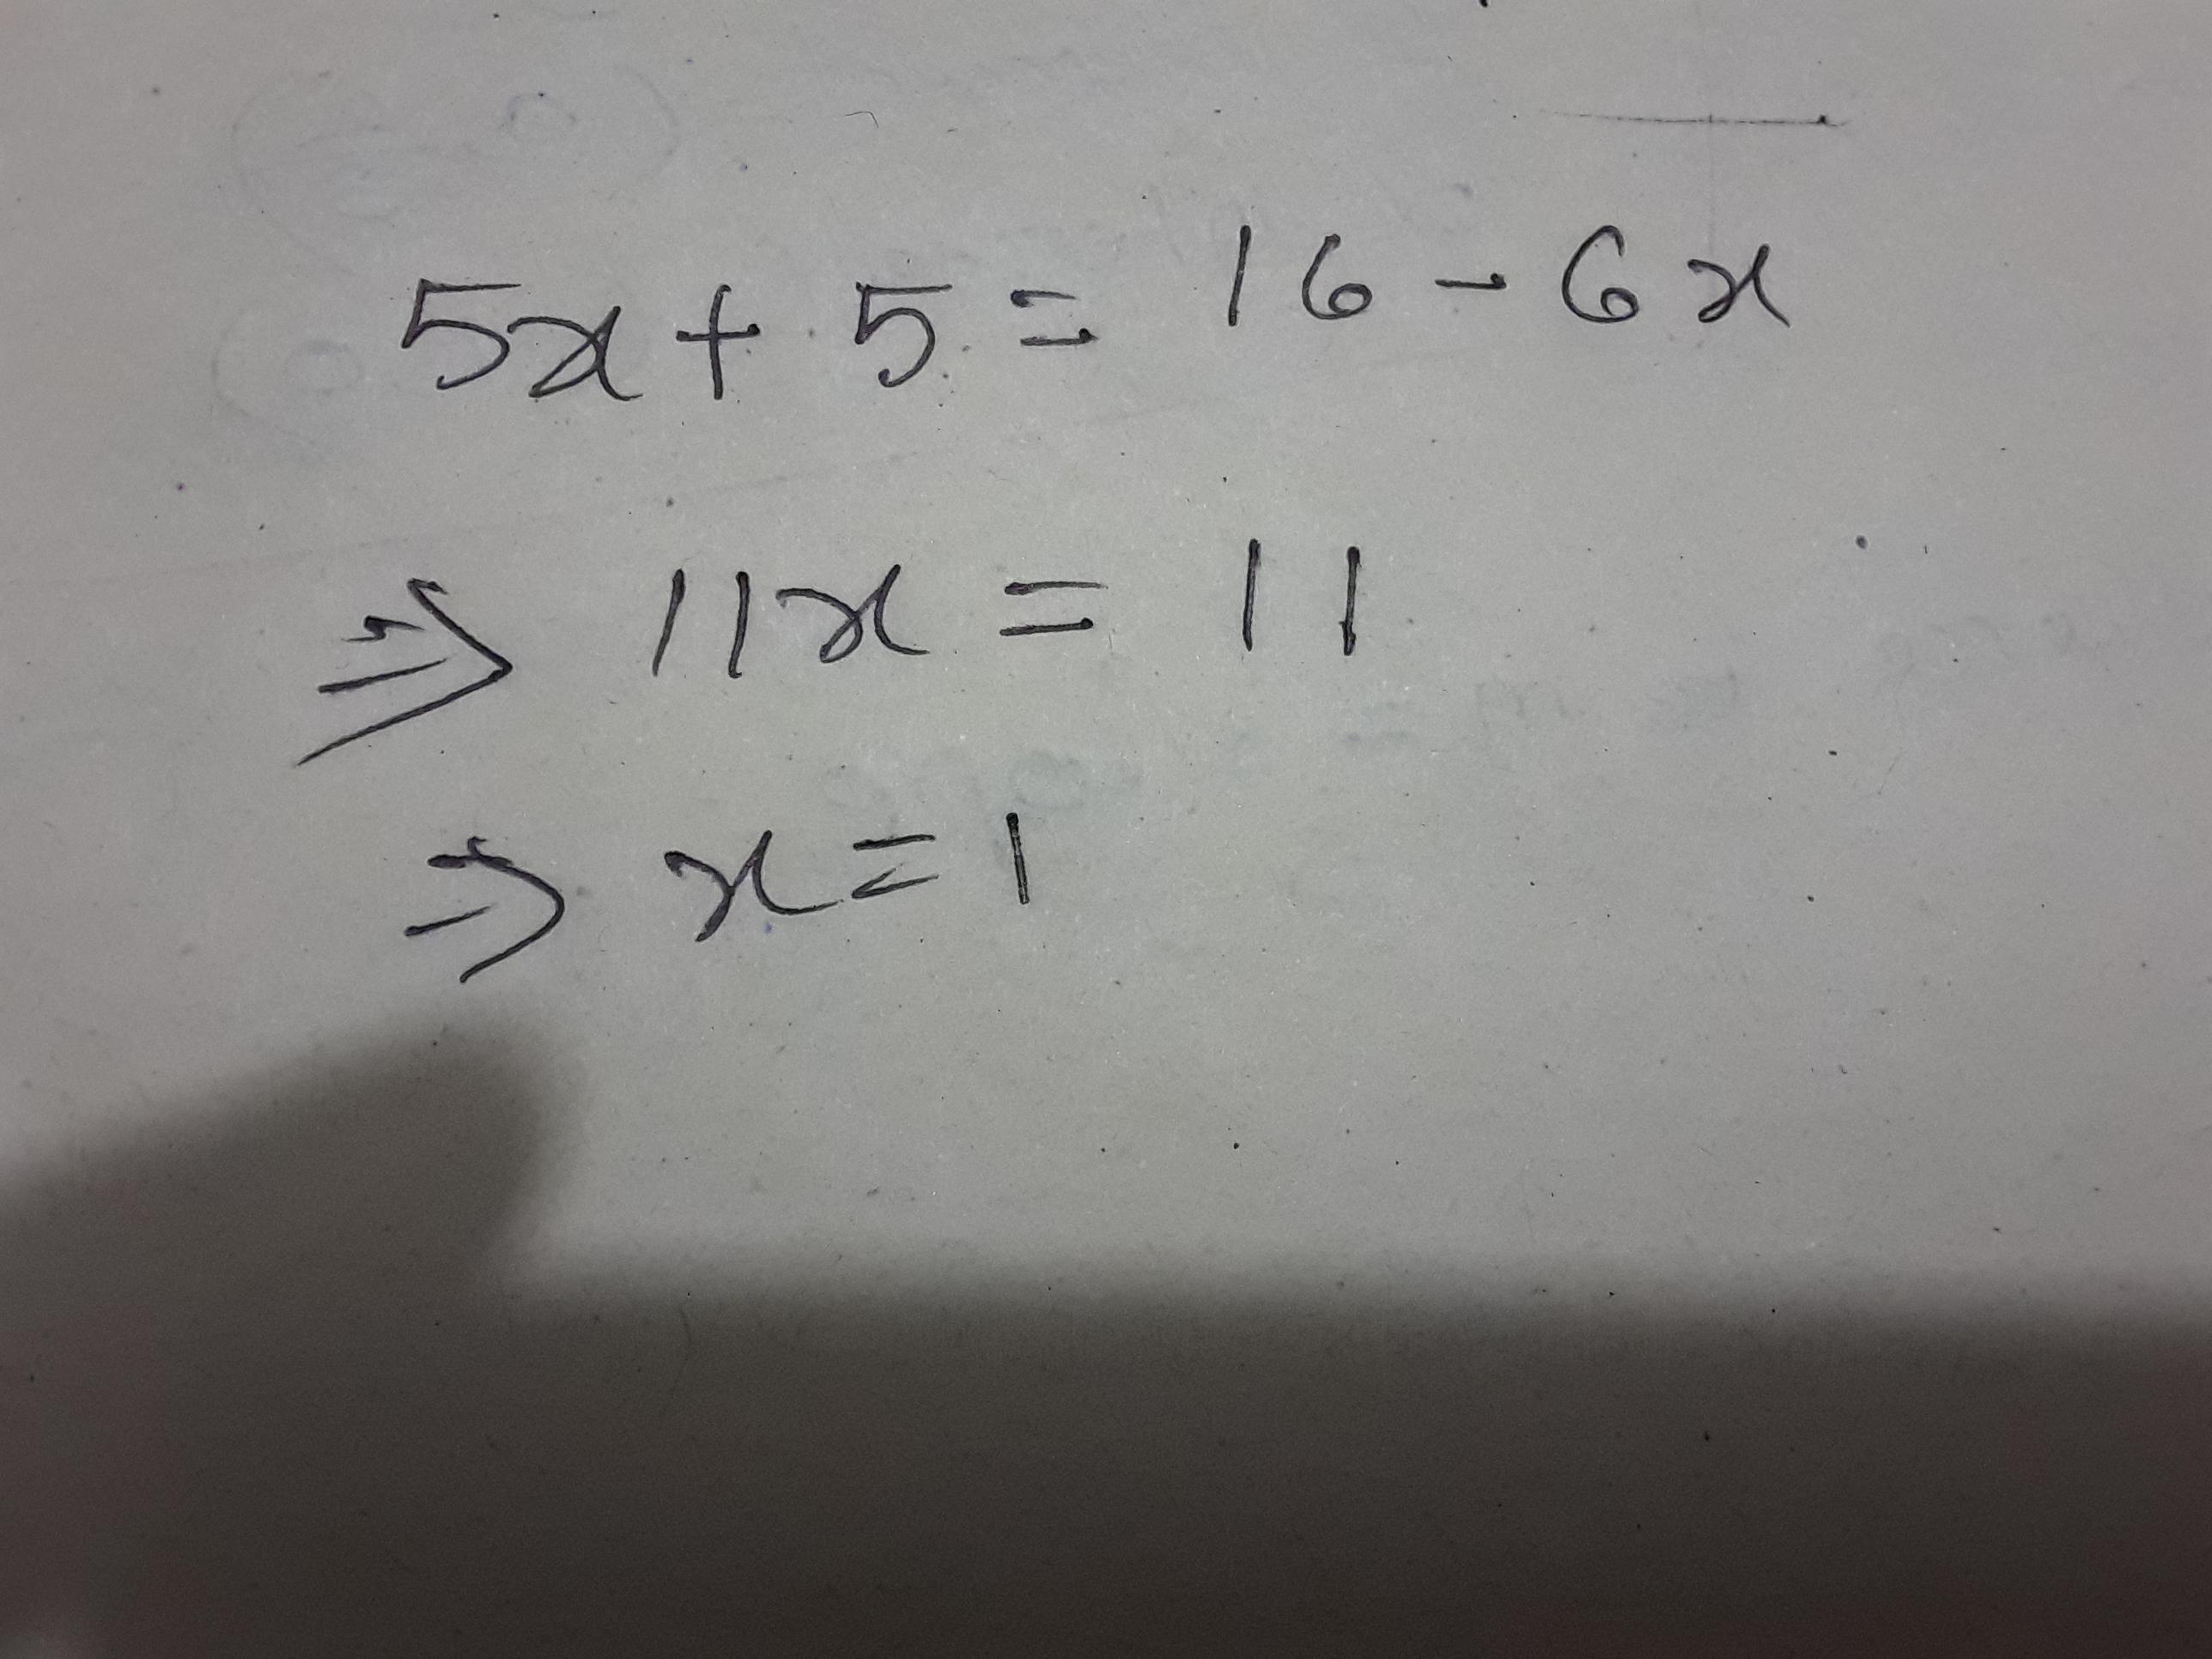 5x + 5 = 16 - 6x
⇒ 11x = 11
⇒ x = 1